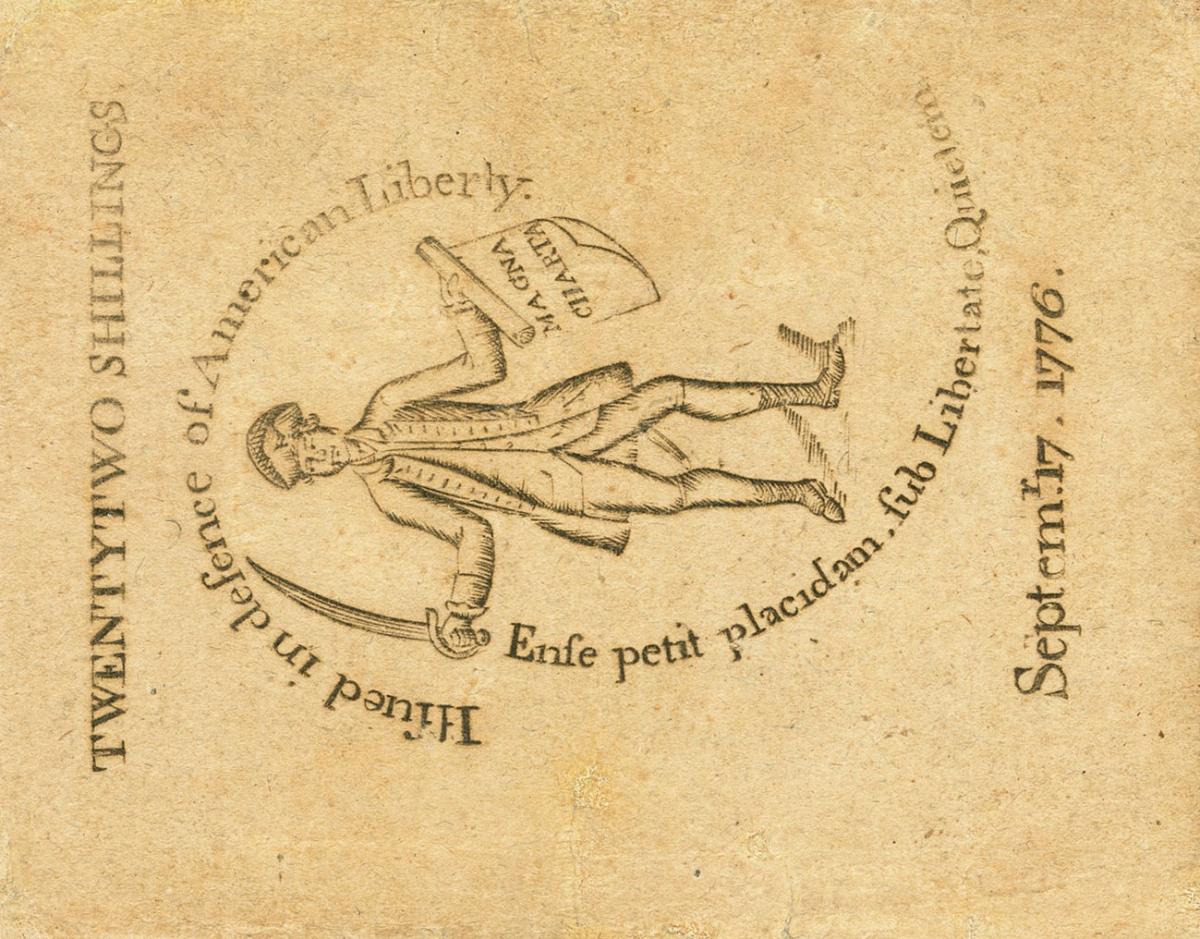 TWENTYTWO SHILLINGS
Iſſued in defence of American Liberty.
MAGNA
CHARTA
Enſe petit placidam, ſub Libertate, Quietem
Septemʳ. 17. 1776.